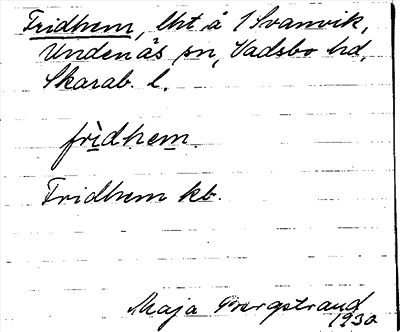 Fridhem, lht å 1 Svanvik,
Undenäs sn, Vadsbo hd,
Skarab. l.
frìdhem
Fridhem kb.
Maja Bergstrand
1930